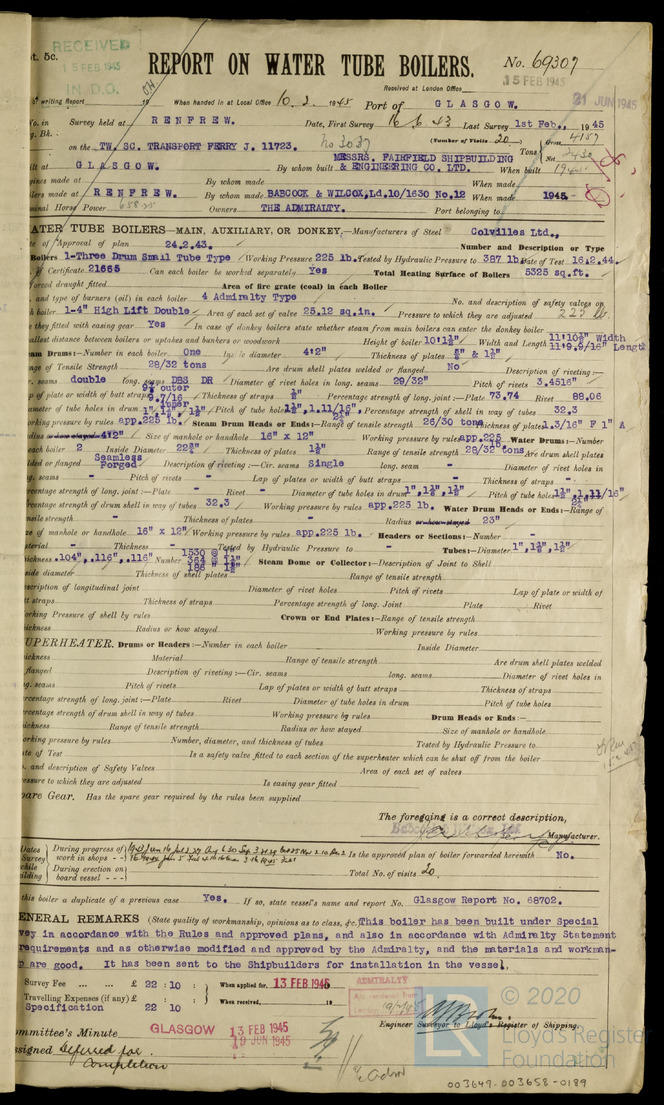 pt. 5c.
RECEIVED
15 FEB 1945
IN D.O.
REPORT ON WATER TUBE BOILERS.
No. 69307
Received at London Office
15 FEB 1945
21 JUN 1945
of writing Report 19 When handed in at Local Office 10. 2. 1945 Port of GLASGOW.
No. in Survey held at RENFREW. Date, First Survey 16. 6. 43 Last Survey 1st Feb., 1945
g. Bk. (Number of Visits 20)
on the TW. SC. TRANSPORT FERRY J. 11723. No 3037 Tons Gross 4157 Net
ilt at GLASGOW. By whom built MESSRS. FAIRFIELD SHIPBUILDING & ENGINEERING CO. LTD. When built 194
gines made at By whom made When made
ilers made at RENFREW. By whom made BABCOCK & WILCOX, Ld. 10/1630 No.12 When made 1945.
minal Horse Power Owners THE ADMIRALTY. Port belonging to
ATER TUBE BOILERS—MAIN, AUXILIARY, OR DONKEY.—Manufacturers of Steel Colvilles Ltd.,
te of Approval of plan 24.2.43. Number and Description or Type
Boilers 1-Three Drum Small Tube Type Working Pressure 225 lb. Tested by Hydraulic Pressure to 387 lb. Date of Test 16.2.44.
Certificate 21665 Can each boiler be worked separately Yes Total Heating Surface of Boilers 5325 sq.ft.
forced draught fitted Area of fire grate (coal) in each Boiler
and type of burners (oil) in each boiler 4 Admiralty Type No. and description of safety valves on
h boiler 1-4" High Lift Double Area of each set of valves 25.12 sq.in. Pressure to which they are adjusted 225 lb.
e they fitted with easing gear Yes In case of donkey boilers state whether steam from main boilers can enter the donkey boiler
allest distance between boilers or uptakes and bunkers or woodwork Height of boiler 10'1½" Width and Length 11'10½" Width 11'9.9/16" Length
eam Drums:—Number in each boiler One Inside diameter 4'2" Thickness of plates ⅝" & 1½"
nge of Tensile Strength 28/32 tons Are drum shell plates welded or flanged No Description of riveting:—
r. seams double long. seams DBS DR Diameter of rivet holes in long. seams 29/32" Pitch of rivets 3.4516"
p of plate or width of butt straps 9¾ outer 9.7/16 inner Thickness of straps ½" Percentage strength of long. joint:—Plate 73.74 Rivet 88.06
ameter of tube holes in drum Pitch of tube holes Percentage strength of shell in way of tubes 32.3
rking pressure by rules app. 225 lb. Steam Drum Heads or Ends:—Range of tensile strength 26/30 tons Thickness of plates 1.3/16" F 1" A
dius or how stayed 4'2" Size of manhole or handhole 16" x 12" Working pressure by rules app. 225 lb. Water Drums:—Number
each boiler 2 Inside Diameter 22¾" Thickness of plates 1½" Range of tensile strength 28/32 tons Are drum shell plates
lded or flanged Seamless Forged Description of riveting:—Cir. seams Single long. seam - Diameter of rivet holes in
g. seams - Pitch of rivets - Lap of plates or width of butt straps - Thickness of straps -
rcentage strength of long. joint:—Plate - Rivet - Diameter of tube holes in drum Pitch of tube holes
rcentage strength of drum shell in way of tubes 32.3 Working pressure by rules app. 225 lb. Water Drum Heads or Ends:—Range of
nsile strength - Thickness of plates - Radius or how stayed 23"
ze of manhole or handhole 16" x 12" Working pressure by rules app. 225 lb. Headers or Sections:—Number -
aterial - Thickness - Tested by Hydraulic Pressure to - Tubes:—Diameter
hickness .104", .116", .116" Number 1530 @ 1" Steam Dome or Collector:—Description of Joint to Shell
side diameter Thickness of shell plates Range of tensile strength
scription of longitudinal joint Diameter of rivet holes Pitch of rivets Lap of plate or width of
tt straps Thickness of straps Percentage strength of long. Joint Plate Rivet
orking Pressure of shell by rules Crown or End Plates:—Range of tensile strength
ickness Radius or how stayed Working pressure by rules
UPERHEATER. Drums or Headers:—Number in each boiler Inside Diameter
ickness Material Range of tensile strength Are drum shell plates welded
flanged Description of riveting:—Cir. seams long. seams Diameter of rivet holes in
ng. seams Pitch of rivets Lap of plates or width of butt straps Thickness of straps
rcentage strength of long. joint:—Plate Rivet Diameter of tube holes in drum Pitch of tube holes
rcentage strength of drum shell in way of tubes Working pressure by rules Drum Heads or Ends:—
ickness Range of tensile strength Radius or how stayed Size of manhole or handhole
orking pressure by rules Number, diameter, and thickness of tubes Tested by Hydraulic Pressure to
te of Test Is a safety valve fitted to each section of the superheater which can be shut off from the boiler
. and description of Safety Valves Area of each set of valves
essure to which they are adjusted Is easing gear fitted
pare Gear. Has the spare gear required by the rules been supplied
The foregoing is a correct description,
Manufacturer.
Dates Survey while building
During progress of work in shops - -
Is the approved plan of boiler forwarded herewith No.
During erection on board vessel - - -
Total No. of visits 20.
this boiler a duplicate of a previous case Yes. If so, state vessel's name and report No. Glasgow Report No. 68702.
ENERAL REMARKS (State quality of workmanship, opinions as to class, &c. This boiler has been built under Special
vey in accordance with the Rules and approved plans, and also in accordance with Admiralty Statement
requirements and as otherwise modified and approved by the Admiralty, and the materials and workman-
p are good. It has been sent to the Shipbuilders for installation in the vessel.
Survey Fee ... ... £ 22 : 10 : When applied for, 13 FEB 1945
Travelling Expenses (if any) £ : : When received, 19
Specification 22 10
ADMIRALTY
Engineer Surveyor to Lloyd's Register of Shipping.
ommittee's Minute GLASGOW 13 FEB 1945
19 JUN 1945
ssigned Deferred for completion
© 2020
Lloyd's Register
Foundation
LR
003649-003658-0189